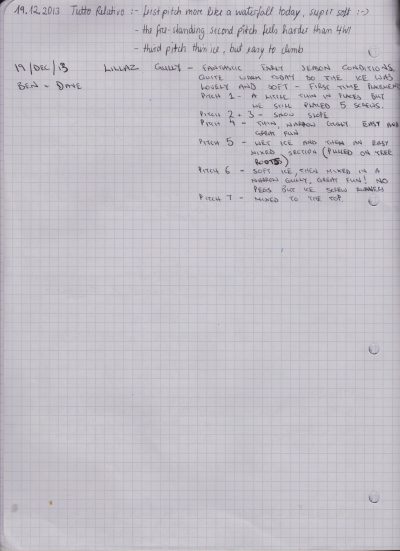 19.12.2013 Tutto Relativo :- first pitch more like a waterfall today, super soft :-)
- the free-standing second pitch feels harder than 4!!
- third pitch thin ice, but easy to climb
19/DEC/13 LILLAZ GULLY - FANTASTIC EARLY SEASON CONDITIONS,
QUITE WARM TODAY SO THE ICE WAS
BEN + DAVE LOVELY AND SOFT - FIRST TIME PLACEMENTS
PITCH 1 - A LITTLE THIN IN PLACES BUT
WE STILL PLACED 5 SCREWS.
PITCH 2 + 3 - SNOW SLOPE
PITCH 4 - THIN NARROW GULLY EASY AND
GREAT FUN
PITCH 5 - WET ICE AND THEN AN EASY
MIXED SECTION (PULLED ON TREE
ROOTS)
PITCH 6 - SOFT ICE, THEN MIXED IN A
NARROW GULLY, GREAT FUN! NO
PEGS BUT ICE SCREW RUNNERS
PITCH 7 - MIXED TO THE TOP.